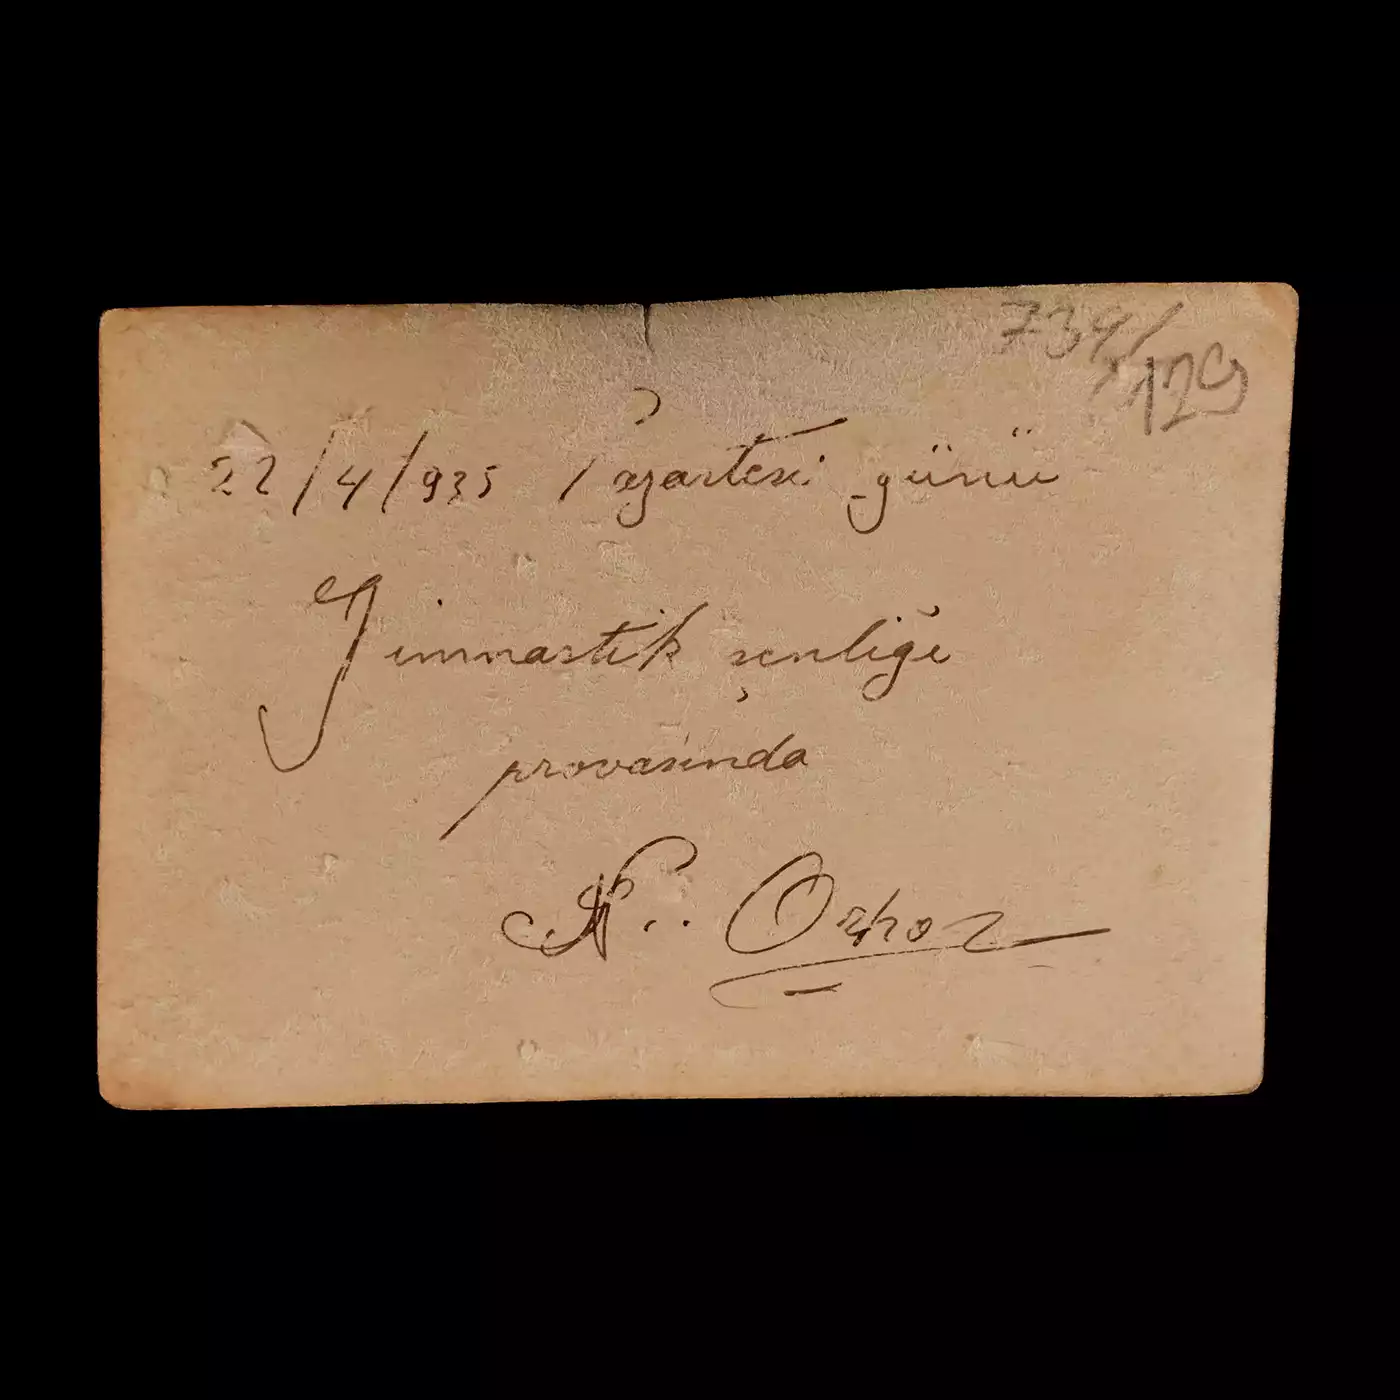 739/
129
22/4/935 Pazartesi günü
Jimnastik şenliği
provasında
N.. Orhon